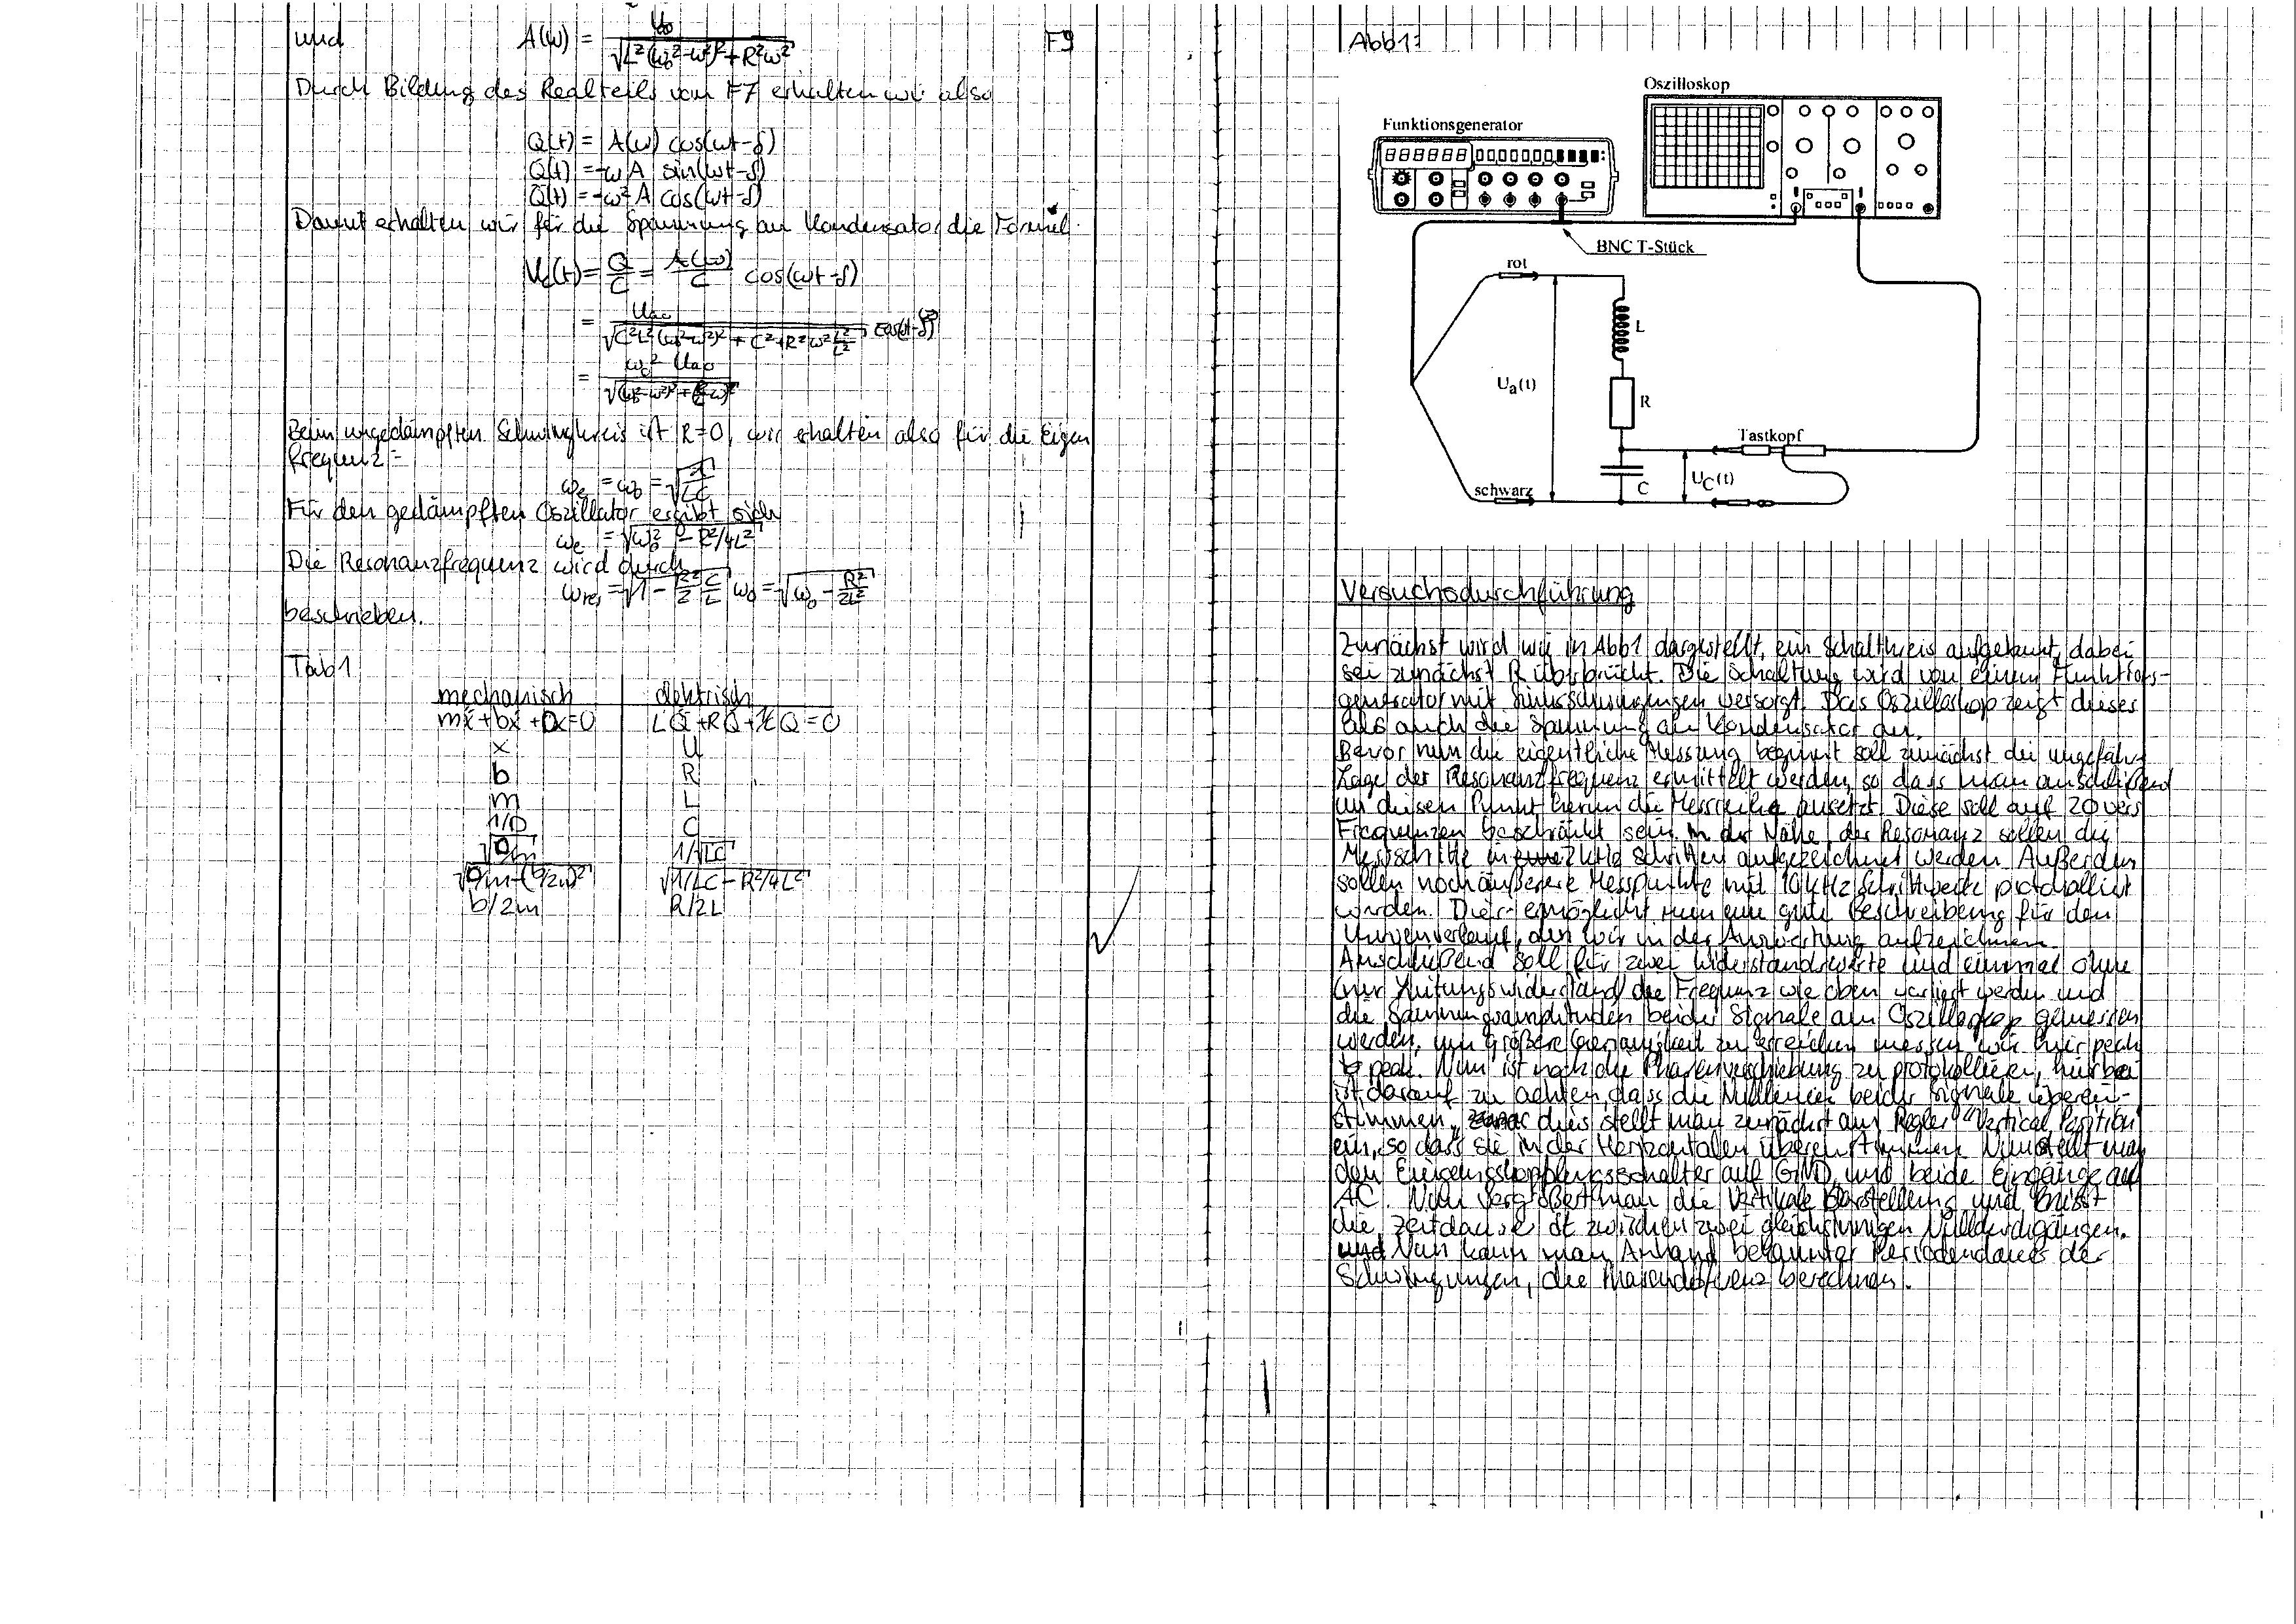 und A(ω) = U₀ / √(L²(ω₀²-ω²)² + R²ω²) F9
Durch Bildung des Realteils von F7 erhalten wir also
Q(t) = A(ω) cos(ωt-δ)
Q̇(t) = -ωA sin(ωt-δ)
Q̈(t) = -ω²A cos(ωt-δ)
Damit erhalten wir für die Spannung am Kondensator die Formel:
U_C(t) = Q/C = A(ω)/C cos(ωt-δ)
= U_a0 / √(C²L²(ω₀²-ω²)² + C²+R²ω² L²/L²) cos(ωt-δ)
= ω₀² U_a0 / √((ω₀²-ω²)² + (R/L ω)²)
Beim ungedämpften Schwingkreis ist R=0, wir erhalten also für die Eigen
frequenz:
ω_e = ω₀ = √(1/LC)
Für den gedämpften Oszillator ergibt sich
ω_e = √(ω₀² - R²/4L²)
Die Resonanzfrequenz wird durch
ω_res = √(1 - R²/2 C/L) ω₀ = √(ω₀ - R²/2L²)
beschrieben.
Tab1
mechanisch elektrisch
mẍ+bẋ+Dx=0 LQ̈+RQ̇+1/C Q=0
x U
b R
m L
1/D C
√D/m 1/√LC
√(D/m-(b/2m)²) √(1/LC-R²/4L²)
b/2m R/2L
Abb1:
Oszilloskop
Funktionsgenerator
BNC T-Stück
rot
L
Uₐ(t)
R
Tastkopf
C
U_C(t)
schwarz
Versuchsdurchführung
Zunächst wird wie in Abb1 dargestellt, ein Schaltkreis aufgebaut, dabei
sei zunächst R überbrückt. Die Schaltung wird von einem Funktions-
generator mit Sinusschwingungen versorgt. Das Oszilloskop zeigt dieses
als auch die Spannung am Kondensator an.
Bevor nun die eigentliche Messung beginnt soll zunächst die ungefähre
Lage der Resonanzfrequenz ermittelt werden, so dass man anschließend
um diesen Punkt herum die Messreihe ansetzt. Diese soll auf 20 vers
Frequenzen beschränkt sein. In der Nähe der Resonanz sollen die
Messschritte in Schritten aufgezeichnet werden. Außerdem
sollen noch äußerere Messpunkte mit 10kHz Schrittweite protokolliert
werden. Dies ermöglicht nun eine gute Beschreibung für den
Kurvenverlauf, den wir in der Auswertung aufzeichnen.
Anschließend soll für zwei Widerstandswerte und einmal ohne
(nur Leitungswiderstand) die Frequenz wie oben variiert werden und
die Spannungsamplituden beider Signale am Oszilloskop gemessen
werden, um größere Genauigkeit zu erreichen messen wir hier peak
to peak. Nun ist noch die Phasenverschiebung zu protokollieren, hierbei
ist darauf zu achten, dass die Nulllinien beider Signale überein-
stimmen, dies stellt man zunächst am Regler "Vertical Position"
ein, so dass sie in der Horizontalen übereinstimmen. Nun stellt man
den Eingangskopplungsschalter auf GND, und beide Eingänge auf
AC. Nun vergrößert man die vertikale Darstellung und misst
die Zeitdauer δt zwischen zwei gleichsinnigen Nulldurchgängen.
und Nun kann man Anhand bekannter Periodendauer der
Schwingungen, die Phasendifferenz berechnen.